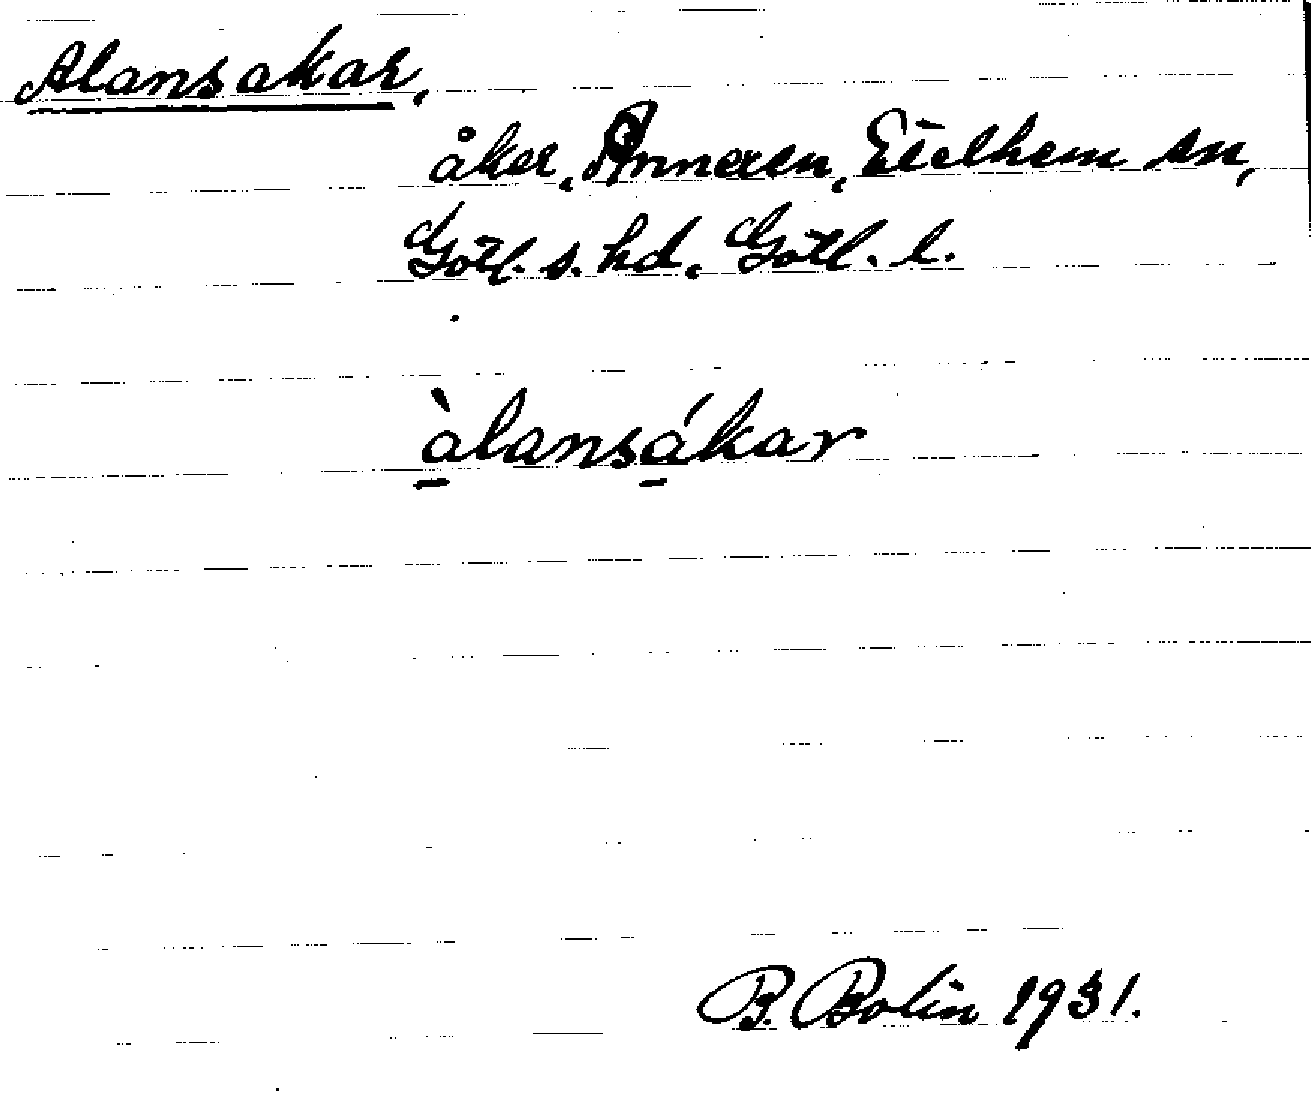 Alansakar,
åker, Annexen, Etelhem sn,
Gotl. s. hd. Gotl. l.
àlansákar
B. Bolin 1931.